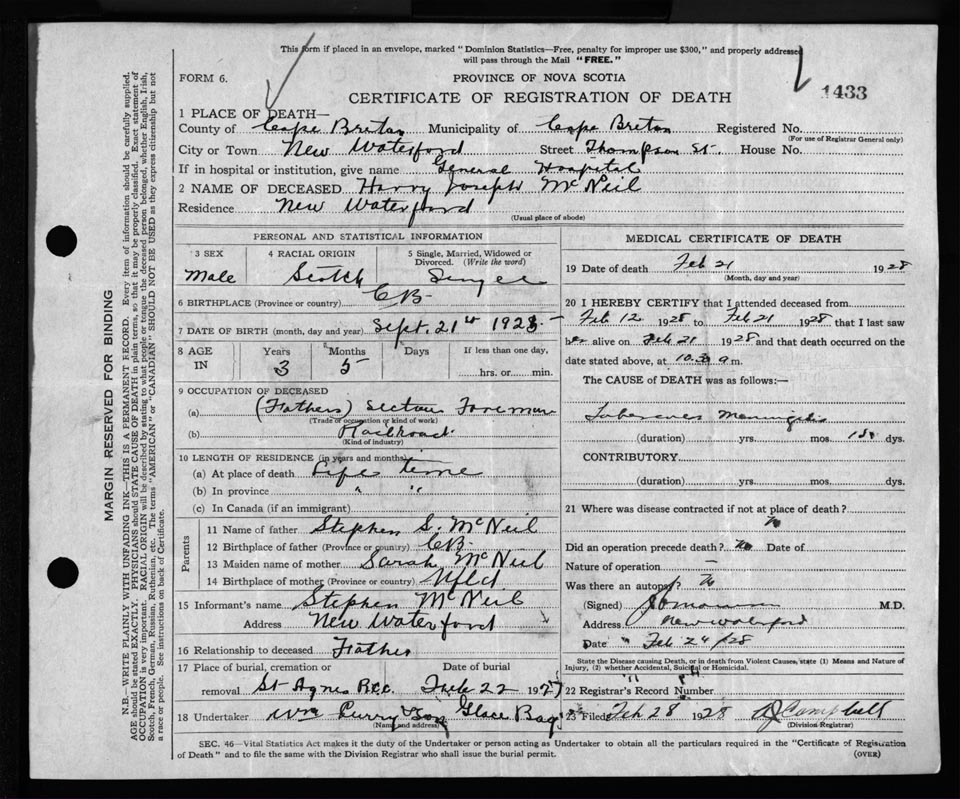 This form if placed in an envelope, marked "Dominion Statistics—Free, penalty for improper use $300," and properly addressed
will pass through the Mail "FREE."
FORM 6.
PROVINCE OF NOVA SCOTIA
CERTIFICATE OF REGISTRATION OF DEATH
1433
1 PLACE OF DEATH—
County of Cape Breton Municipality of Cape Breton Registered No.
(For use of Registrar General only)
City or Town New Waterford Street Thompson St. House No.
If in hospital or institution, give name General Hospital
2 NAME OF DECEASED Harry Joseph McNeil
Residence New Waterford
(Usual place of abode)
PERSONAL AND STATISTICAL INFORMATION
3 SEX 4 RACIAL ORIGIN 5 Single, Married, Widowed or Divorced. (Write the word)
Male Scotch
6 BIRTHPLACE (Province or country) CB
7 DATE OF BIRTH (month, day and year) Sept. 21st
8 AGE IN Years Months Days If less than one day,
3 5 hrs. or min.
9 OCCUPATION OF DECEASED
(a) (Fathers) Section Foreman
(Trade of occupation or kind of work)
(b) Railroad
(Kind of industry)
10 LENGTH OF RESIDENCE (in years and months)
(a) At place of death Life time
(b) In province " "
(c) In Canada (if an immigrant)
Parents
11 Name of father Stephen S. McNeil
12 Birthplace of father (Province or country) CB
13 Maiden name of mother Sarah McNeil
14 Birthplace of mother (Province or country) Nfld
15 Informant's name Stephen McNeil
Address New Waterford
16 Relationship to deceased Father
17 Place of burial, cremation or removal Date of burial
St Agnes 22 192
18 Undertaker Wm Curry & Son Glace Bay
(Name and address)
MEDICAL CERTIFICATE OF DEATH
19 Date of death Feb 21 1928
(Month, day and year)
20 I HEREBY CERTIFY that I attended deceased from
Feb 12 1928 to Feb 21 1928 that I last saw
h alive on Feb 21 1928 and that death occurred on the
date stated above, at 10.30 a m.
The CAUSE of DEATH was as follows:—
Meningitis
(duration) yrs. mos. dys.
CONTRIBUTORY
(duration) yrs. mos. dys.
21 Where was disease contracted if not at place of death?
No
Did an operation precede death? No Date of
Nature of operation —
Was there an autopsy? No
(Signed) M.D.
Address New Waterford
Date " Feb 24 /28
State the Disease causing Death, or in death from Violent Causes, state (1) Means and Nature of
Injury, (2) whether Accidental, Suicidal or Homicidal.
22 Registrar's Record Number
23 Filed Feb 28 1928 Campbell
(Division Registrar)
SEC. 46—Vital Statistics Act makes it the duty of the Undertaker or person acting as Undertaker to obtain all the particulars required in the "Certificate of Registration
of Death" and to file the same with the Division Registrar who shall issue the burial permit.
(OVER)
MARGIN RESERVED FOR BINDING
N.B.—WRITE PLAINLY WITH UNFADING INK—THIS IS A PERMANENT RECORD. Every item of information should be carefully supplied.
AGE should be stated EXACTLY. PHYSICIANS should STATE CAUSE OF DEATH in plain terms, so that it may be properly classified. Exact statement of
OCCUPATION is very important. RACIAL ORIGIN will be described by stating to what people or tongue the deceased person belonged, whether English, Irish,
Scotch, French, German, Russian, Ruthenian, etc. The terms "AMERICAN" or "CANADIAN" SHOULD NOT BE USED as they express citizenship but not
a race or people. See instructions on back of Certificate.